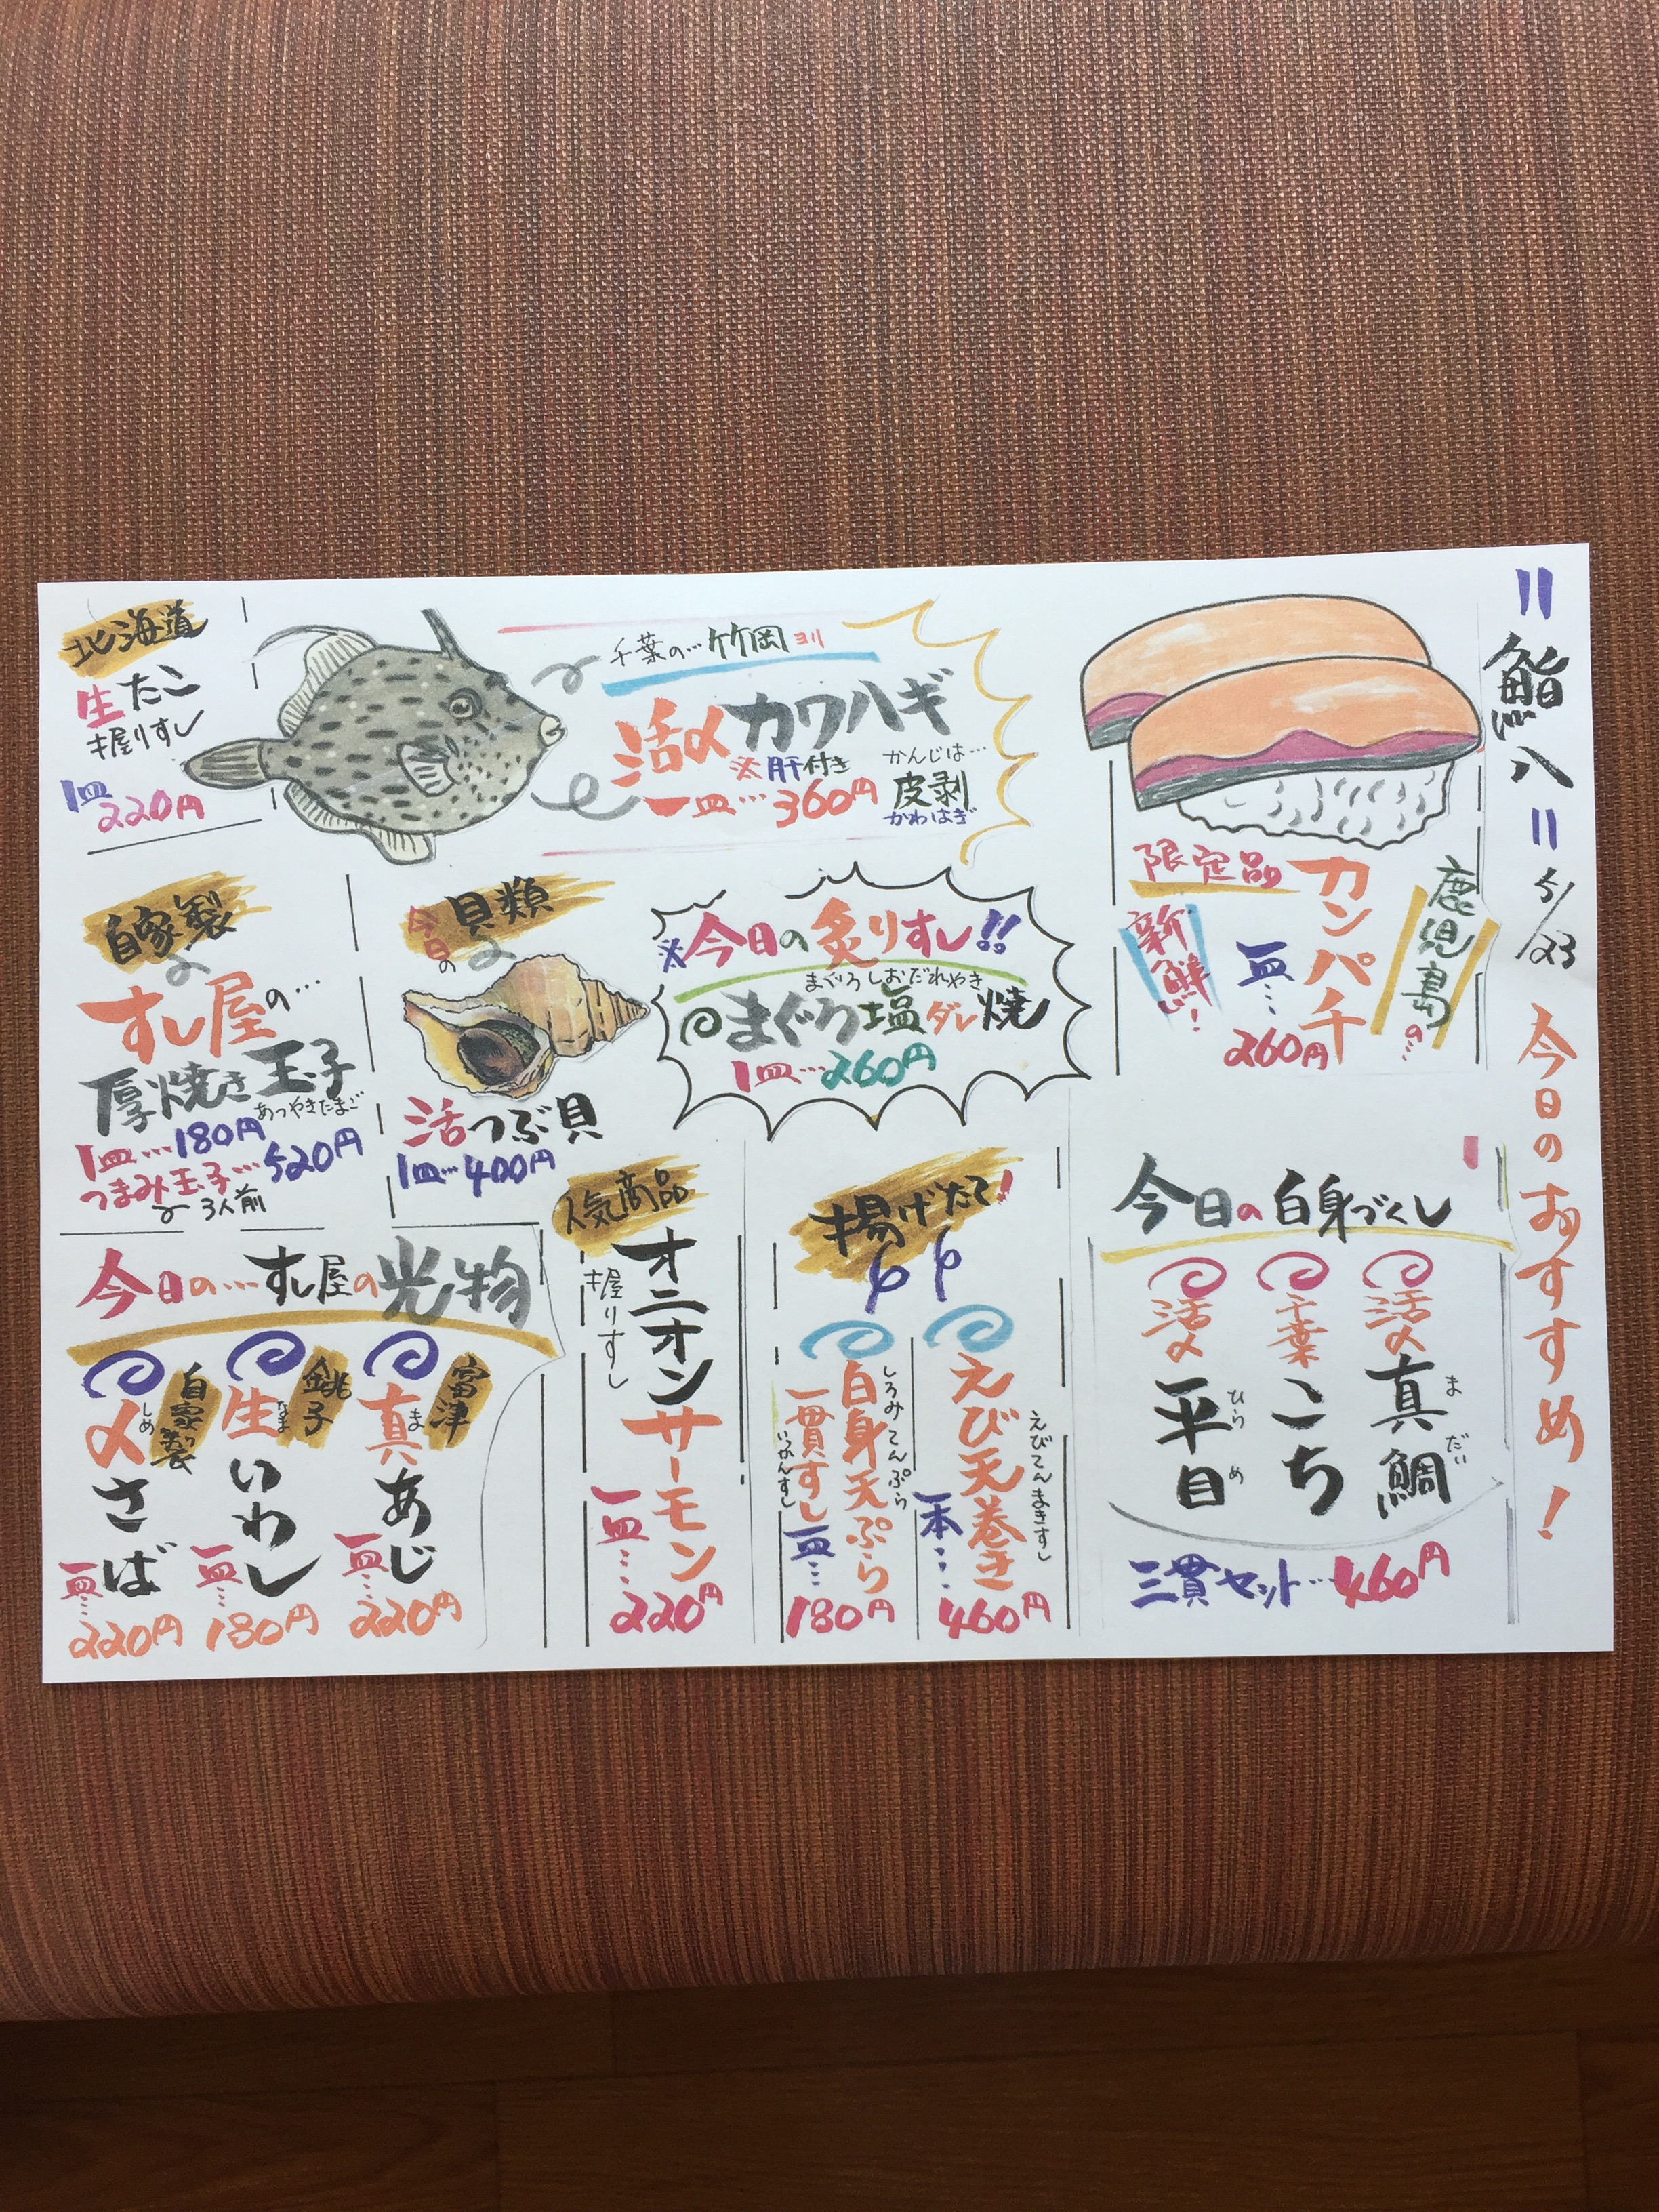 〃鮨八〃 5/23 今日のおすすめ!
鹿児島の…
カンパチ
限定品
新鮮!
一皿…
260円
千葉の…竹岡ヨリ
活〆カワハギ
※肝付き
一皿…360円
かんじは…
皮剥
かわはぎ
北海道
生たこ
握りすし
1皿
220円
※今日の炙りすし!!
まぐろしおだれやき
まぐろ塩ダレ焼
1皿…260円
今日の貝類
活つぶ貝
1皿…400円
自家製
すし屋の…
厚焼き玉子
あつやきたまご
1皿…180円
つまみ玉子…520円
3人前
今日の白身づくし
活〆真鯛
まだい
千葉こち
活〆平目
ひらめ
三貫セット…460円
揚げたて!
えび天巻き
えびてんまきすし
一本…
460円
白身天ぷら
しろみてんぷら
一貫すし
いっかんすし
一皿…
180円
人気商品
オニオンサーモン
握りすし
一皿…
220円
今日の…すし屋の光物
富津
真あじ
ま
一皿…
220円
銚子
生いわし
なま
一皿…
180円
自家製
〆さば
しめ
一皿…
220円